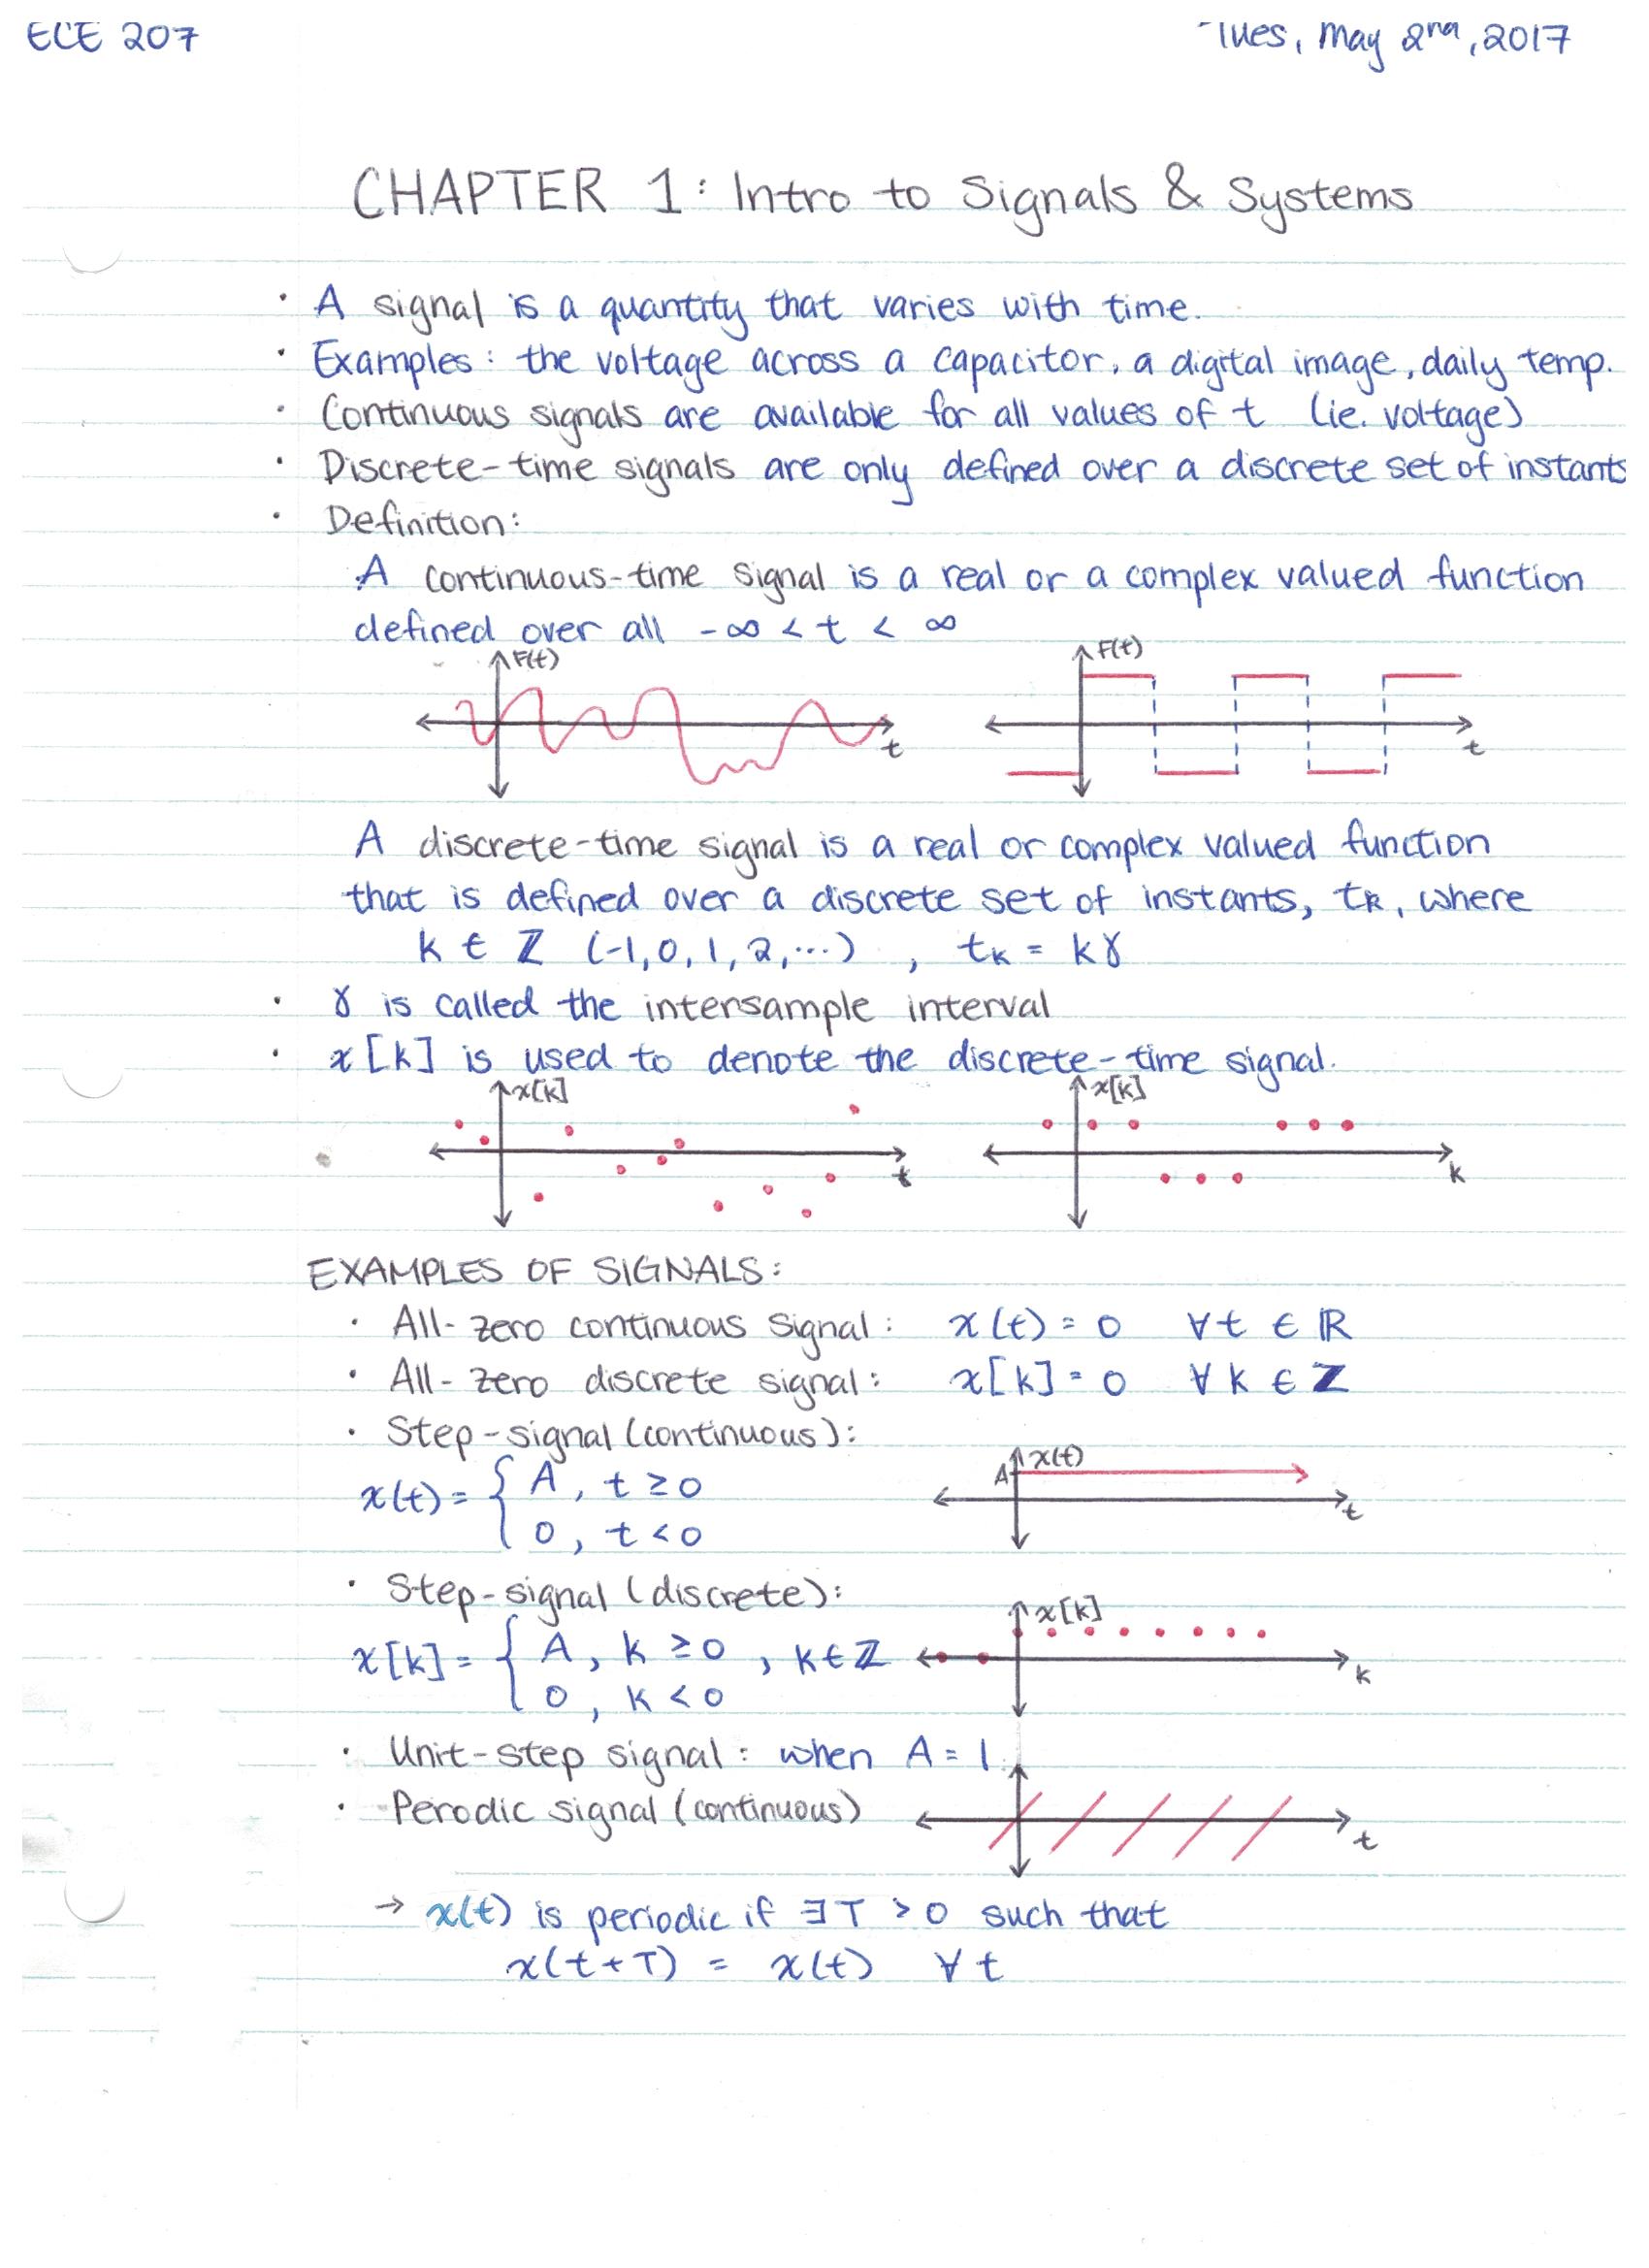 ECE 207
Tues, May 2nd, 2017
CHAPTER 1: Intro to Signals & Systems
· A signal is a quantity that varies with time.
· Examples: the voltage across a capacitor, a digital image, daily temp.
· Continuous signals are available for all values of t (ie. voltage)
· Discrete-time signals are only defined over a discrete set of instants
· Definition:
A continuous-time signal is a real or a complex valued function
defined over all -∞ < t < ∞
F(t)
t
F(t)
t
A discrete-time signal is a real or complex valued function
that is defined over a discrete set of instants, tk, where
k ∈ ℤ (-1, 0, 1, 2, ...) , tk = kɣ
· ɣ is called the intersample interval
· x[k] is used to denote the discrete-time signal.
x[k]
t
x[k]
k
EXAMPLES OF SIGNALS:
· All-zero continuous signal: x(t) = 0 ∀t ∈ ℝ
· All-zero discrete signal: x[k] = 0 ∀k ∈ ℤ
· Step-signal (continuous):
x(t) = { A, t ≥ 0
0, t < 0
x(t)
A
t
· Step-signal (discrete):
x[k] = { A, k ≥ 0 , k ∈ ℤ
0, k < 0
x[k]
k
· Unit-step signal: when A = 1.
· Perodic signal (continuous)
t
→ x(t) is periodic if ∃T > 0 such that
x(t+T) = x(t) ∀t